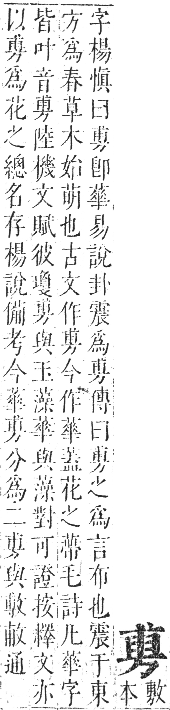 旉
敷
本
字楊愼曰旉卽華易說卦震爲旉傳曰旉之爲言布也震于東
方爲春草木始萌也古文作旉今作華葢花之蔕毛詩凡華字
皆叶音旉陸機文賦彼瓊旉與玉藻華與藻對可證按釋文亦
以旉爲花之總名存楊說備考今華旉分爲二旉與敷通